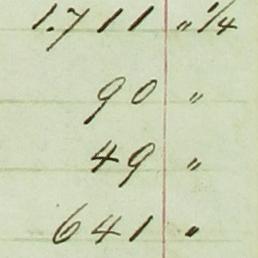 1.711 〃 1/4
90 〃
49 〃
641 〃